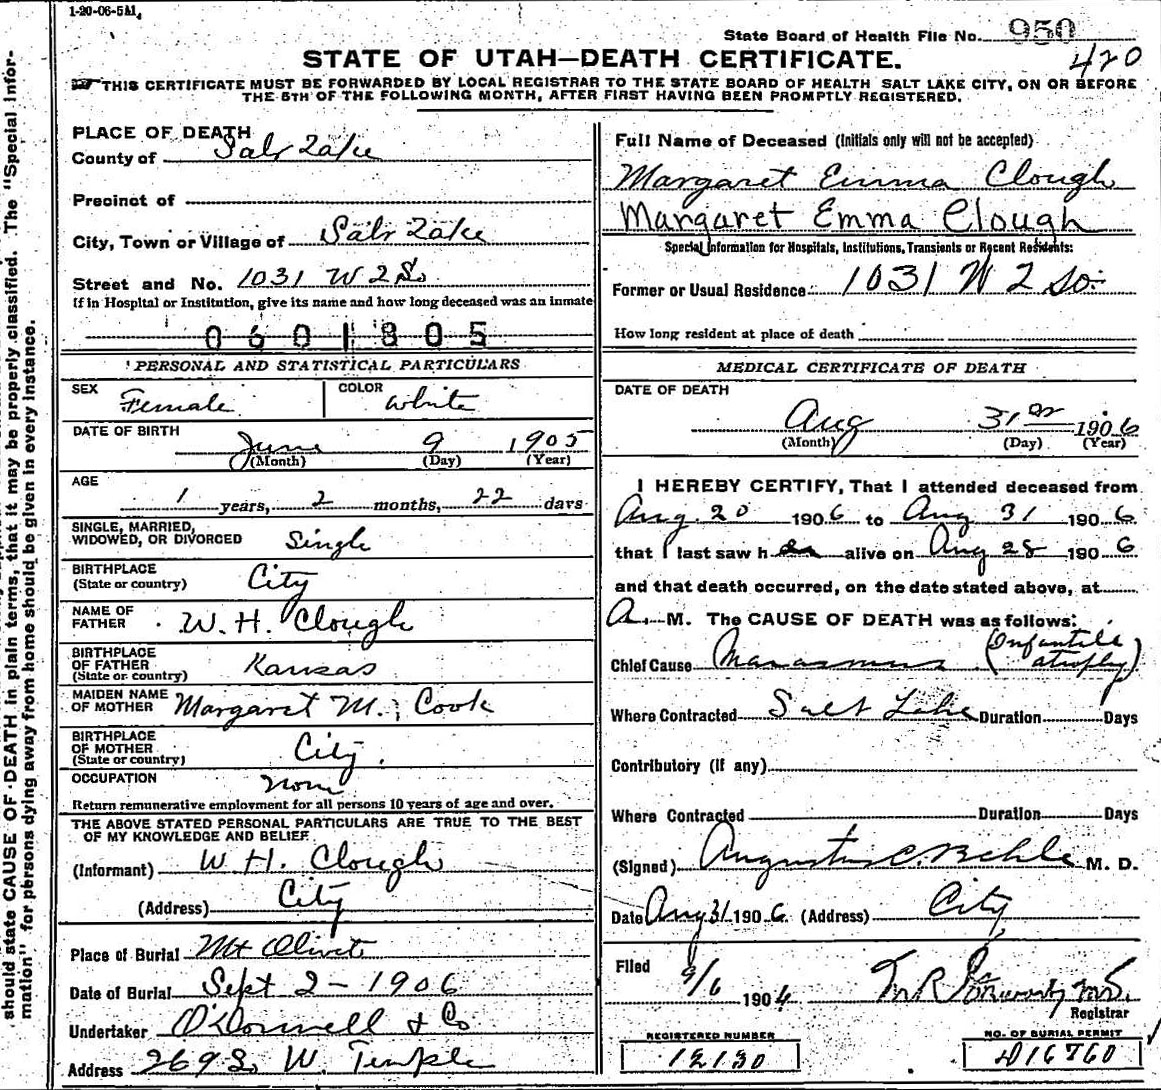 1-20-06-5M.
State Board of Health File No. 950
420
STATE OF UTAH—DEATH CERTIFICATE.
THIS CERTIFICATE MUST BE FORWARDED BY LOCAL REGISTRAR TO THE STATE BOARD OF HEALTH SALT LAKE CITY, ON OR BEFORE
THE 5TH OF THE FOLLOWING MONTH, AFTER FIRST HAVING BEEN PROMPTLY REGISTERED.
should state CAUSE OF DEATH in plain terms, that it may be properly classified. The "Special Infor-
mation" for persons dying away from home should be given in every instance.
PLACE OF DEATH
County of Salt Lake
Precinct of
City, Town or Village of Salt Lake
Street and No. 1031 W 2 So.
If in Hospital or Institution, give its name and how long deceased was an inmate
0601805
PERSONAL AND STATISTICAL PARTICULARS
SEX Female COLOR White
DATE OF BIRTH June 9 1905
(Month) (Day) (Year)
AGE
1 years, 2 months, 22 days
SINGLE, MARRIED,
WIDOWED, OR DIVORCED Single
BIRTHPLACE
(State or country) City
NAME OF
FATHER W. H. Clough
BIRTHPLACE
OF FATHER
(State or country) Kansas
MAIDEN NAME
OF MOTHER Margaret M. Cook
BIRTHPLACE
OF MOTHER
(State or country) City.
OCCUPATION None
Return remunerative employment for all persons 10 years of age and over.
THE ABOVE STATED PERSONAL PARTICULARS ARE TRUE TO THE BEST
OF MY KNOWLEDGE AND BELIEF
(Informant) W H. Clough
(Address) City
Place of Burial Mt Olivet
Date of Burial Sept 2 - 1906
Undertaker O'Donnell & Co
Address 269 S. W. Temple
Full Name of Deceased (Initials only will not be accepted)
Margaret Emma Clough
Margaret Emma Clough
Special Information for Hospitals, Institutions, Transients or Recent Residents:
Former or Usual Residence 1031 W 2 So.
How long resident at place of death
MEDICAL CERTIFICATE OF DEATH
DATE OF DEATH
Aug 31st 1906
(Month) (Day) (Year)
I HEREBY CERTIFY, That I attended deceased from
Aug. 20 1906 to Aug 31 1906
that I last saw her alive on Aug 28 1906
and that death occurred, on the date stated above, at
A. M. The CAUSE OF DEATH was as follows:
Chief Cause Marasmus (Infantile
atrophy)
Where Contracted Salt Lake Duration Days
Contributory (if any)
Where Contracted Duration Days
(Signed) Augustus C. Behle M. D.
Date Aug 31 1906 (Address) City
Filed 9/6 1904 M.D.
Registrar
REGISTERED NUMBER
12130
NO. OF BURIAL PERMIT
D16760